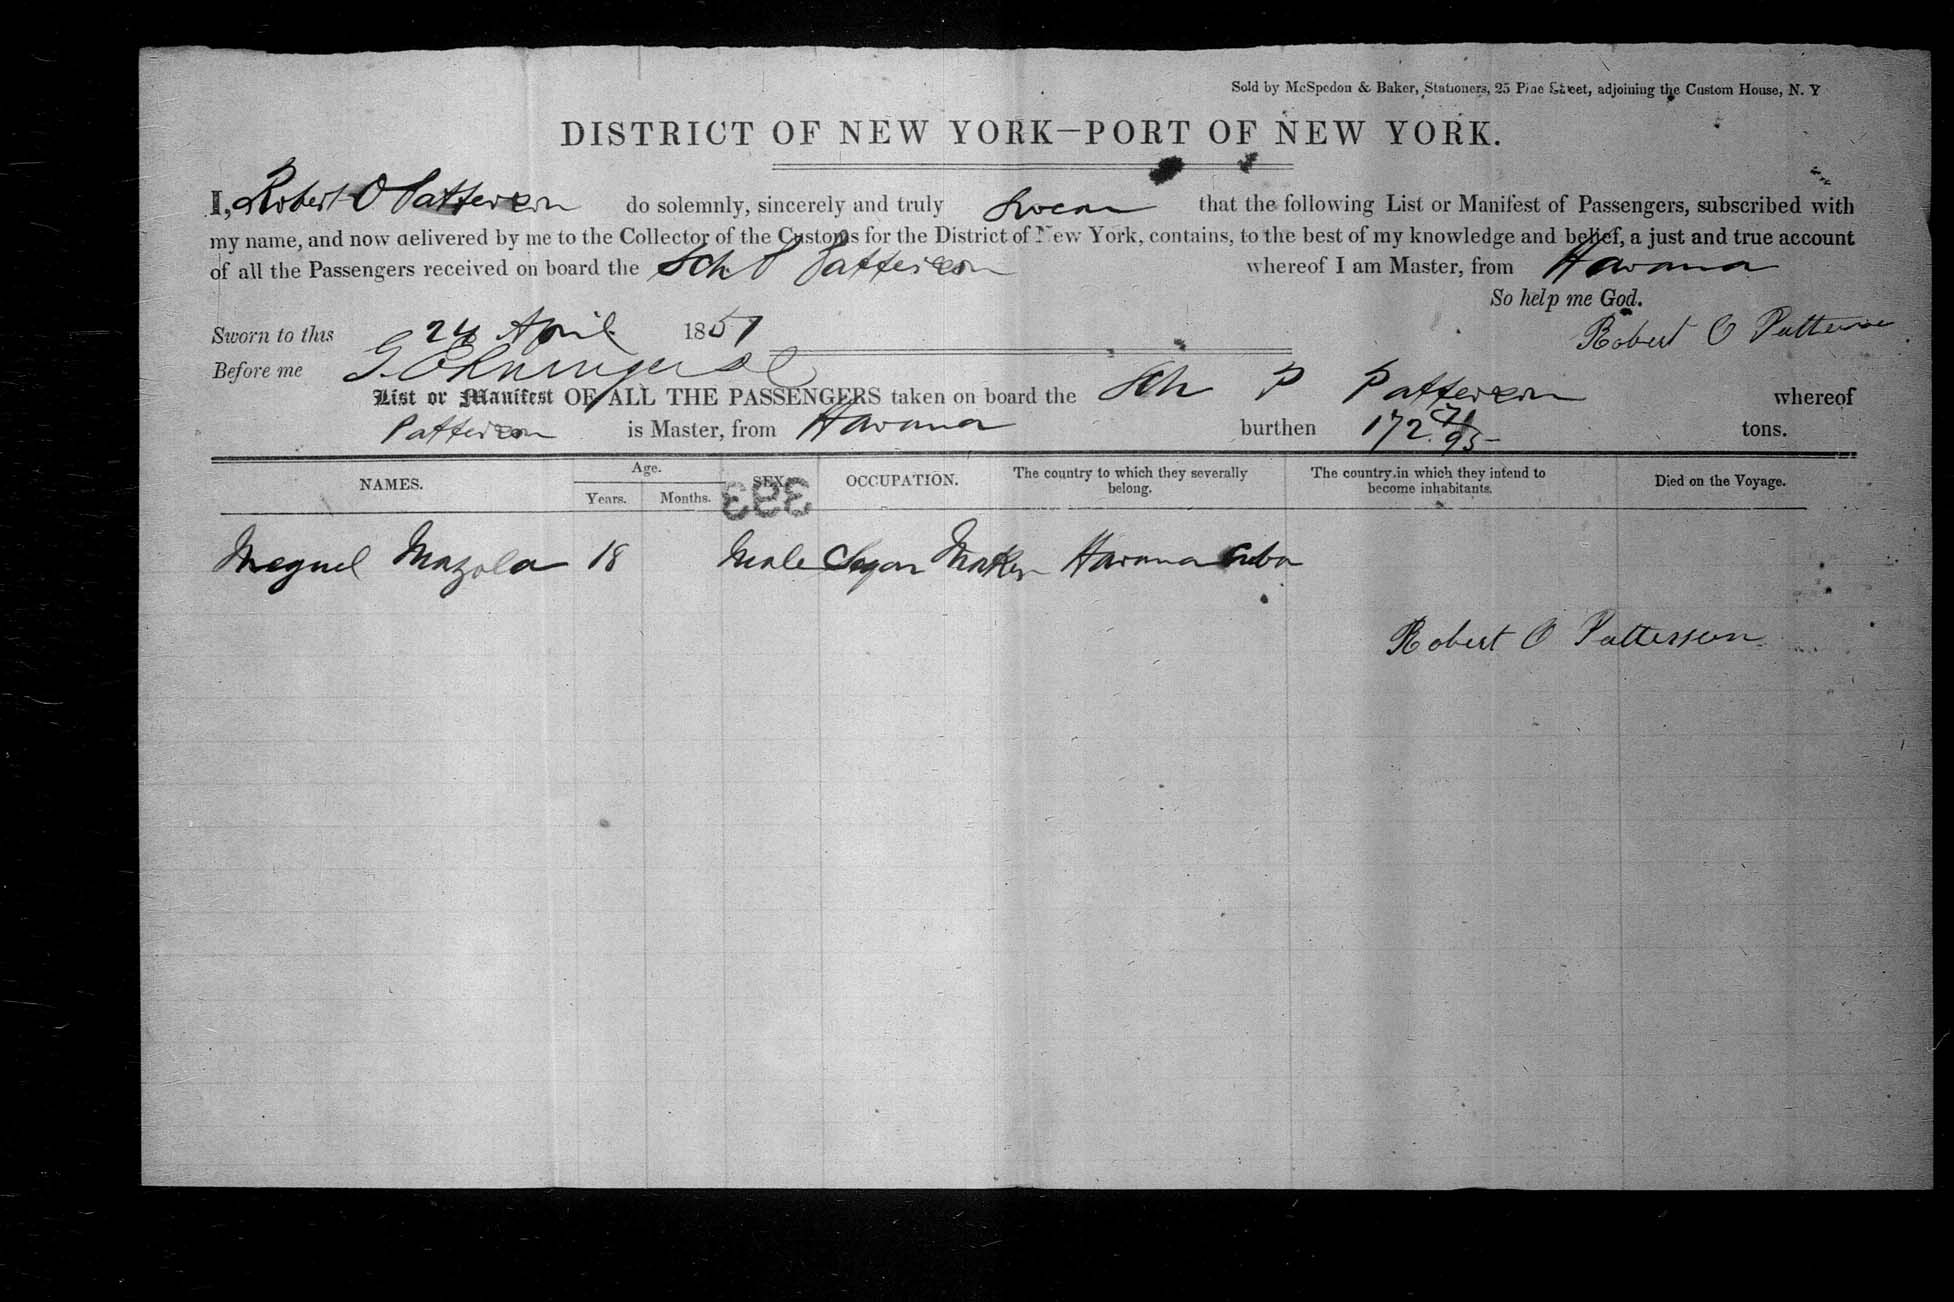 Sold by McSpedon & Baker, Stationers, 25 Pine Street, adjoining the Custom House, N. Y
DISTRICT OF NEW YORK—PORT OF NEW YORK.
I, Robert O Patterson do solemnly, sincerely and truly Swear that the following List or Manifest of Passengers, subscribed with
my name, and now delivered by me to the Collector of the Customs for the District of New York, contains, to the best of my knowledge and belief, a just and true account
of all the Passengers received on board the Sch P Patterson whereof I am Master, from Havana
So help me God.
Sworn to this 24 April 1851 Robert O Patterson
Before me
List or Manifest OF ALL THE PASSENGERS taken on board the Sch P Patterson whereof
Patterson is Master, from Havana burthen 172 71/95 tons.
NAMES. Age. Years. Months. SEX. OCCUPATION. The country to which they severally belong. The country in which they intend to become inhabitants. Died on the Voyage.
393
Meguel Mazola 18 Male Segar Maker Havana Cuba
Robert O Patterson